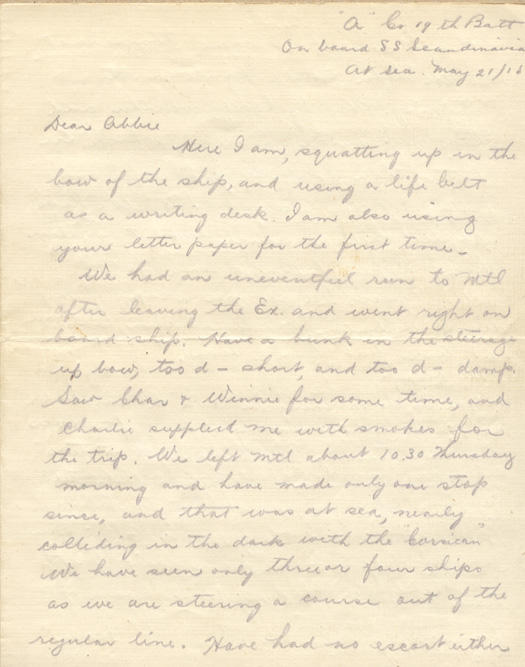 "A" Co 19th Batt
On board SS Scandinavia
At sea. May 21/15
Dear Abbie
Here I am, squatting up in the
bow of the ship, and using a life belt
as a writing desk. I am also using
your letter paper for the first time.
We had an uneventful run to Mtl
after leaving the Ex. and went right on
board ship. Have a bunk in the steerage
up bow, too d- short, and too d- damp.
Saw Char & Winnie for some time, and
Charlie supplied me with smokes for
the trip. We left Mtl about 10.30 Thursday
morning and have made only one stop
since, and that was at sea, nearly
colliding in the dark with the "Corsican"
We have seen only three or four ships
as we are steering a course out of the
regular line. Have had no escort either